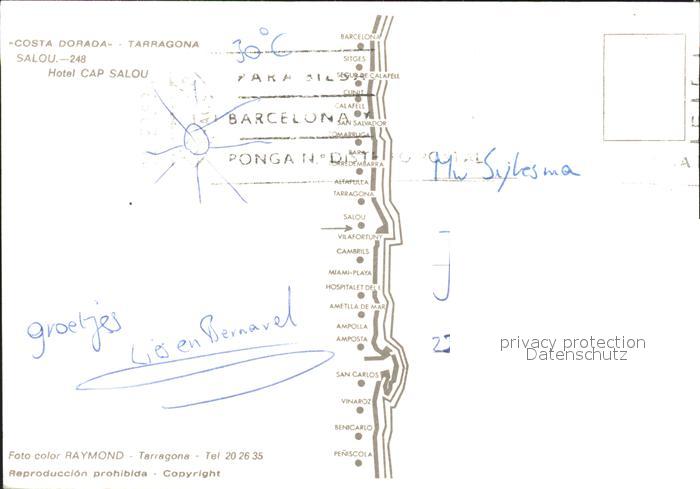 «COSTA DORADA» - TARRAGONA
SALOU.—248
Hotel CAP SALOU
30°C
PARA
BARCELONA Y
PONGA N.º
BARCELONA
SITGES
SEGUR DE CALAFELL
CUNIT
CALAFELL
SAN SALVADOR
COMARRUGA
BARA
TORREDEMBARRA
ALTAFULLA
TARRAGONA
SALOU
VILAFORTUNY
CAMBRILS
MIAMI-PLAYA
HOSPITALET DEL I
AMETLLA DE MAR
AMPOLLA
AMPOSTA
SAN CARLOS
VINAROZ
BENICARLO
PEÑISCOLA
Mw Sijtesma
J
22
privacy protection
Datenschutz
groetjes
Lies en Bernard
Foto color RAYMOND - Tarragona - Tel 20 26 35
Reproducción prohibida - Copyright